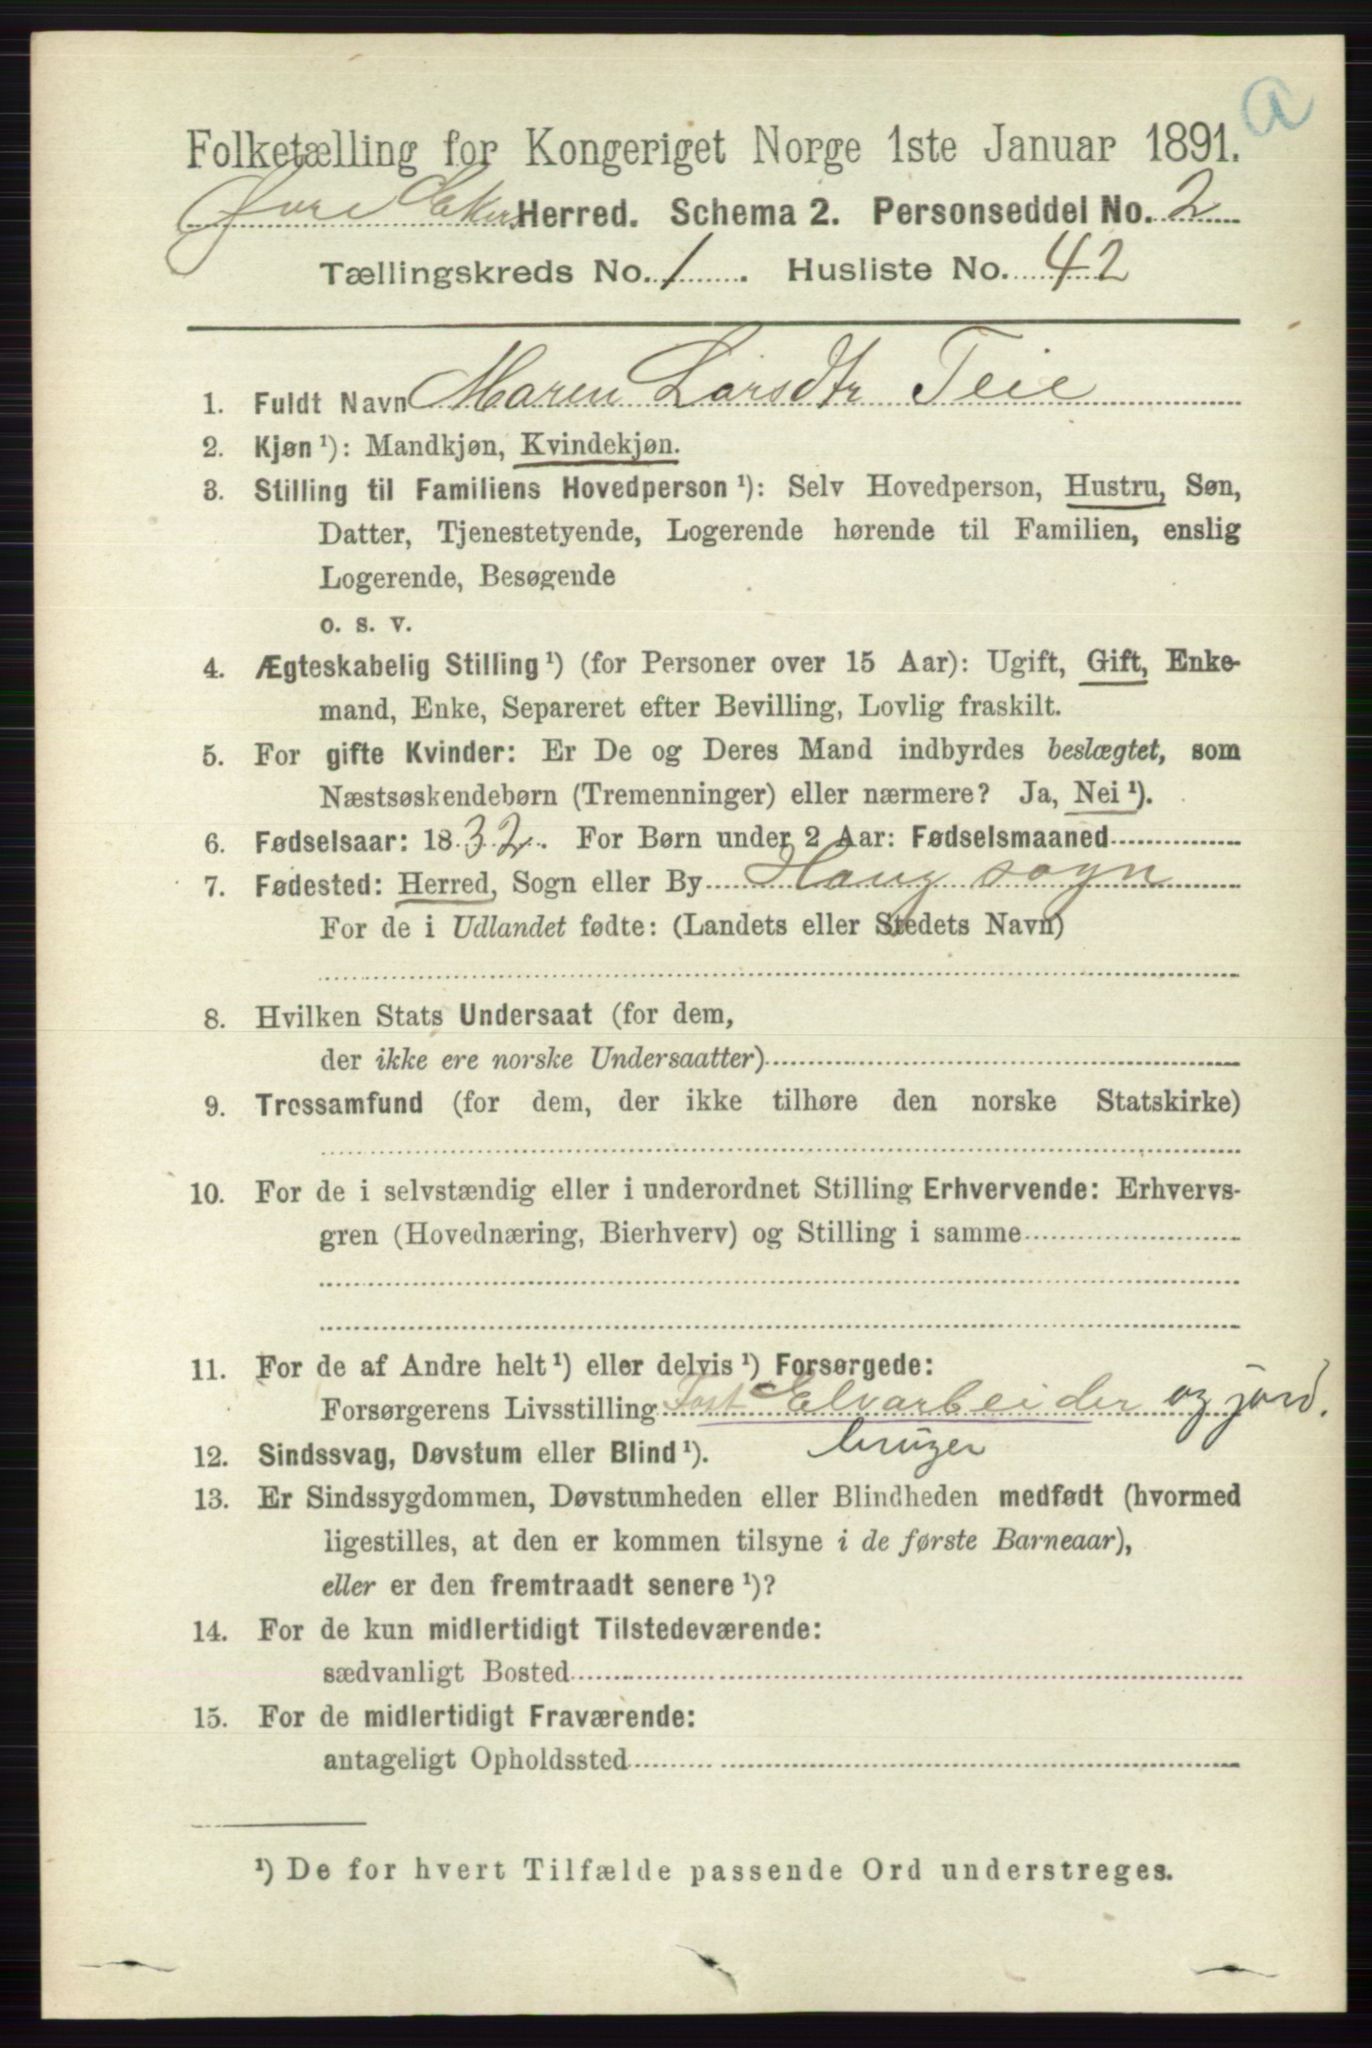 a
Folketælling for Kongeriget Norge 1ste Januar 1891.
Øvre Ekers Herred. Schema 2. Personseddel No. 2
Tællingskreds No. 1. Husliste No. 42
1. Fuldt Navn Maren Larsdtr Teie
2. Kjøn ¹): Mandkjøn, Kvindekjøn.
3. Stilling til Familiens Hovedperson ¹): Selv Hovedperson, Hustru, Søn,
Datter, Tjenestetyende, Logerende hørende til Familien, enslig
Logerende, Besøgende
o. s. v.
4. Ægteskabelig Stilling ¹) (for Personer over 15 Aar): Ugift, Gift, Enke-
mand, Enke, Separeret efter Bevilling, Lovlig fraskilt.
5. For gifte Kvinder: Er De og Deres Mand indbyrdes beslægtet, som
Næstsøskendebørn (Tremenninger) eller nærmere? Ja, Nei ¹).
6. Fødselsaar: 1832. For Børn under 2 Aar: Fødselsmaaned
7. Fødested: Herred, Sogn eller By Haug sogn
For de i Udlandet fødte: (Landets eller Stedets Navn)
8. Hvilken Stats Undersaat (for dem,
der ikke ere norske Undersaatter)
9. Trossamfund (for dem, der ikke tilhøre den norske Statskirke)
10. For de i selvstændig eller i underordnet Stilling Erhvervende: Erhvervs-
gren (Hovednæring, Bierhverv) og Stilling i samme
11. For de af Andre helt ¹) eller delvis ¹) Forsørgede:
Forsørgerens Livsstilling Fast Elvarbeider og jord.
bruger
12. Sindssvag, Døvstum eller Blind ¹).
13. Er Sindssygdommen, Døvstumheden eller Blindheden medfødt (hvormed
ligestilles, at den er kommen tilsyne i de første Barneaar),
eller er den fremtraadt senere ¹)?
14. For de kun midlertidigt Tilstedeværende:
sædvanligt Bosted
15. For de midlertidigt Fraværende:
antageligt Opholdssted
¹) De for hvert Tilfælde passende Ord understreges.